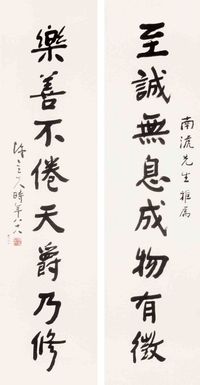 南流先生雅属
至誠無息成物有徵
樂善不倦天爵乃修
時年八十八